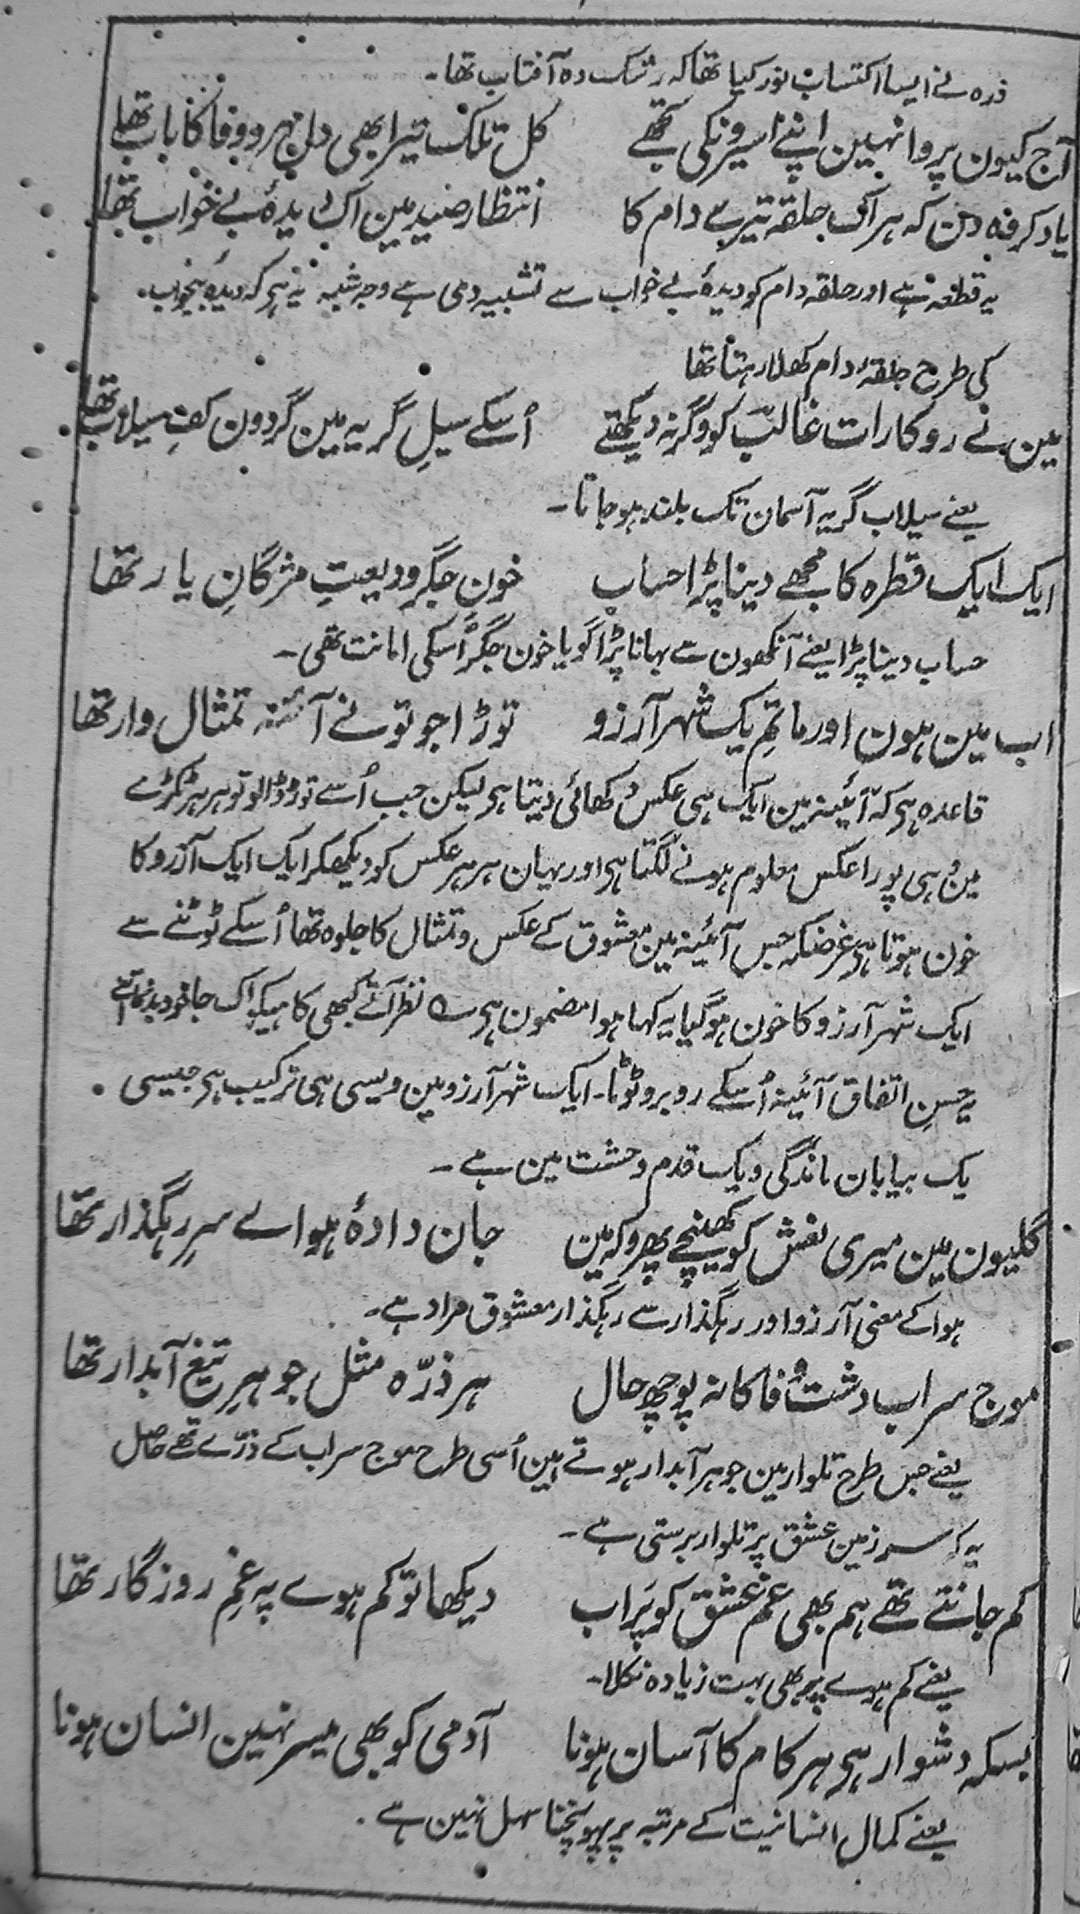 ذرہ نے ایسا اکتساب نور کیا تھا کہ رشک دہ آفتاب تھا۔
آج کیون پروا نہین اپنے اسیرونکی تجھے کل تلک تیرا بھی دل مہر و وفا کا باب تھا
یاد کر وہ دن کہ ہر اک حلقہ تیرے دام کا انتظار صید مین اک دیدۂ بے خواب تھا
یہ قطعہ ہے اور حلقہ دام کو دیدۂ بے خواب سے تشبیہ دی ہے وجہ شبہ یہ ہی کہ دیدۂ بیخواب
کی طرح حلقۂ دام کھلا رہتا تھا
مین نے روکا رات غالب کو وگرنہ دیکھتے اُسکے سیلِ گریہ مین گردون کفِ سیلاب تھا
یعنے سیلاب گریہ آسمان تک بلند ہو جاتا۔
ایک ایک قطرہ کا مجھے دینا پڑا حساب خون جگر ودیعتِ مژگانِ یار تھا
حساب دینا پڑا یعنے آنکھون سے بہانا پڑا گویا خون جگر اُسکی امانت تھی۔
اب مین ہون اور ماتمِ یک شہر آرزو توڑا جو تو نے آئنہ تمثال دار تھا
قاعدہ ہی کہ آئینہ مین ایک ہی عکس دکھائی دیتا ہی لیکن جب اُسے توڑ ڈالو تو ہر ہر ٹکڑے
مین وہی پورا عکس معلوم ہونے لگتا ہی اور یہان ہر ہر عکس کو دیکھکر ایک ایک آرزو کا
خون ہوتا ہی غرضکہ جس آئینہ مین معشوق کے عکس و تمثال کا جلوہ تھا اُسکے ٹوٹنے سے
ایک شہر آرزو کا خون ہو گیا یہ کہا ہوا مضمون ہی نظر آتے کبھی کاہیکو اک جا خود بدنما اتنے
یہ حسنِ اتفاق آئینہ اُسکے روبرو ٹوٹا۔ ایک شہر آرزو مین ویسی ہی ترکیب ہی جیسی
یک بیابان ماندگی و یک قدم وحشت مین ہے۔
گلیون مین میری نعش کو کھینچے پھرو کہ مین جان دادۂ ہواے سرِ رہگذار تھا
ہوا کے معنی آرزو اور رہگذار سے رہگذار معشوق مراد ہے۔
موج سراب دشت وفا کا نہ پوچھ حال ہر ذرّہ مثل جوہرِ تیغ آبدار تھا
یعنے جس طرح تلوار مین جوہر آبدار ہوتے ہین اُسی طرح موج سراب کے ذرّے تھے حاصل
یہ کہ سرزمین عشق پر تلوار برستی ہے۔
کم جانتے تھے ہم بھی غم عشق کو پر اب دیکھا تو کم ہوے پہ غمِ روزگار تھا
یعنے کم ہوے پر بھی بہت زیادہ نکلا۔
بسکہ دشوار ہی ہر کام کا آسان ہونا آدمی کو بھی میسر نہین انسان ہونا
یعنے کمال انسانیت کے مرتبہ پر پہونچنا سہل نہین ہے۔